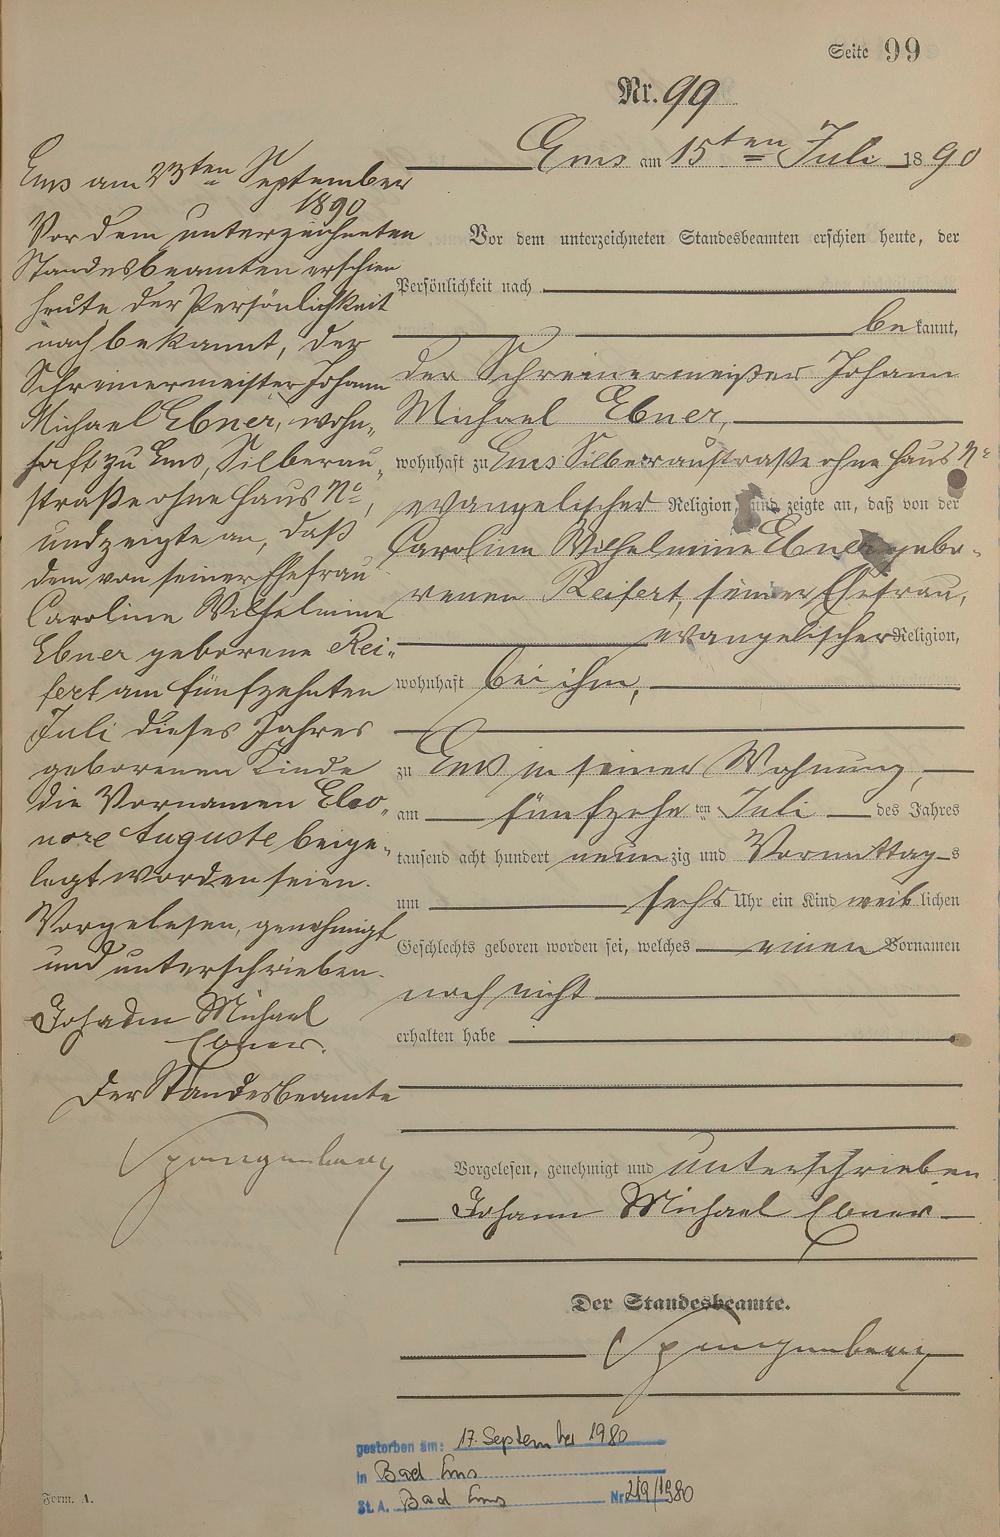 Seite 99
Nr. 99
Ems am 15ten Juli 1890
Vor dem unterzeichneten Standesbeamten erschien heute, der
Persönlichkeit nach
bekannt,
der Schreinermeister Johann
Michael Ebner,
wohnhaft zu Ems Silberaustraße ohne Haus No
evangelischer Religion, und zeigte an, daß von der
Caroline Wilhelmine Ebner gebo-
renen Reifert, seiner Ehefrau,
evangelischer Religion,
wohnhaft bei ihm,
zu Ems in seiner Wohnung,
am fünfzehnten Juli des Jahres
tausend acht hundert neunzig und Vormittags
um sechs Uhr ein Kind weiblichen
Geschlechts geboren worden sei, welches einen Vornamen
noch nicht
erhalten habe
Vorgelesen, genehmigt und unterschrieben
Johann Michael Ebner
Der Standesbeamte.
Spangenberg
Ems am 23ten September
1890
Vor dem unterzeichneten
Standesbeamten erschien
heute der Persönlichkeit
nach bekannt, der
Schreinermeister Johann
Michael Ebner, wohn-
haft zu Ems, Silberau-
straße ohne Haus No,
und zeigte an, daß
dem von seiner Ehefrau
Caroline Wilhelmine
Ebner geborene Rei-
fert am fünfzehnten
Juli dieses Jahres
geborenen Kinde
die Vornamen Eleo-
nore Auguste beige-
legt worden seien.
Vorgelesen, genehmigt
und unterschrieben.
Johann Michael
Ebner.
Der Standesbeamte
Spangenberg
gestorben am: 17. September 1980
in Bad Ems
St.A. Bad Ems Nr. 219/1980
Form. A.